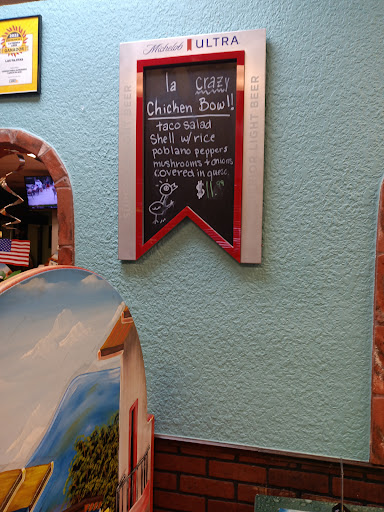 Michelob ULTRA
la crazy
Chicken Bowl!
taco salad
shell w/ rice
poblano peppers
mushrooms + onions
covered in queso.
$11.99
LIGHT BEER